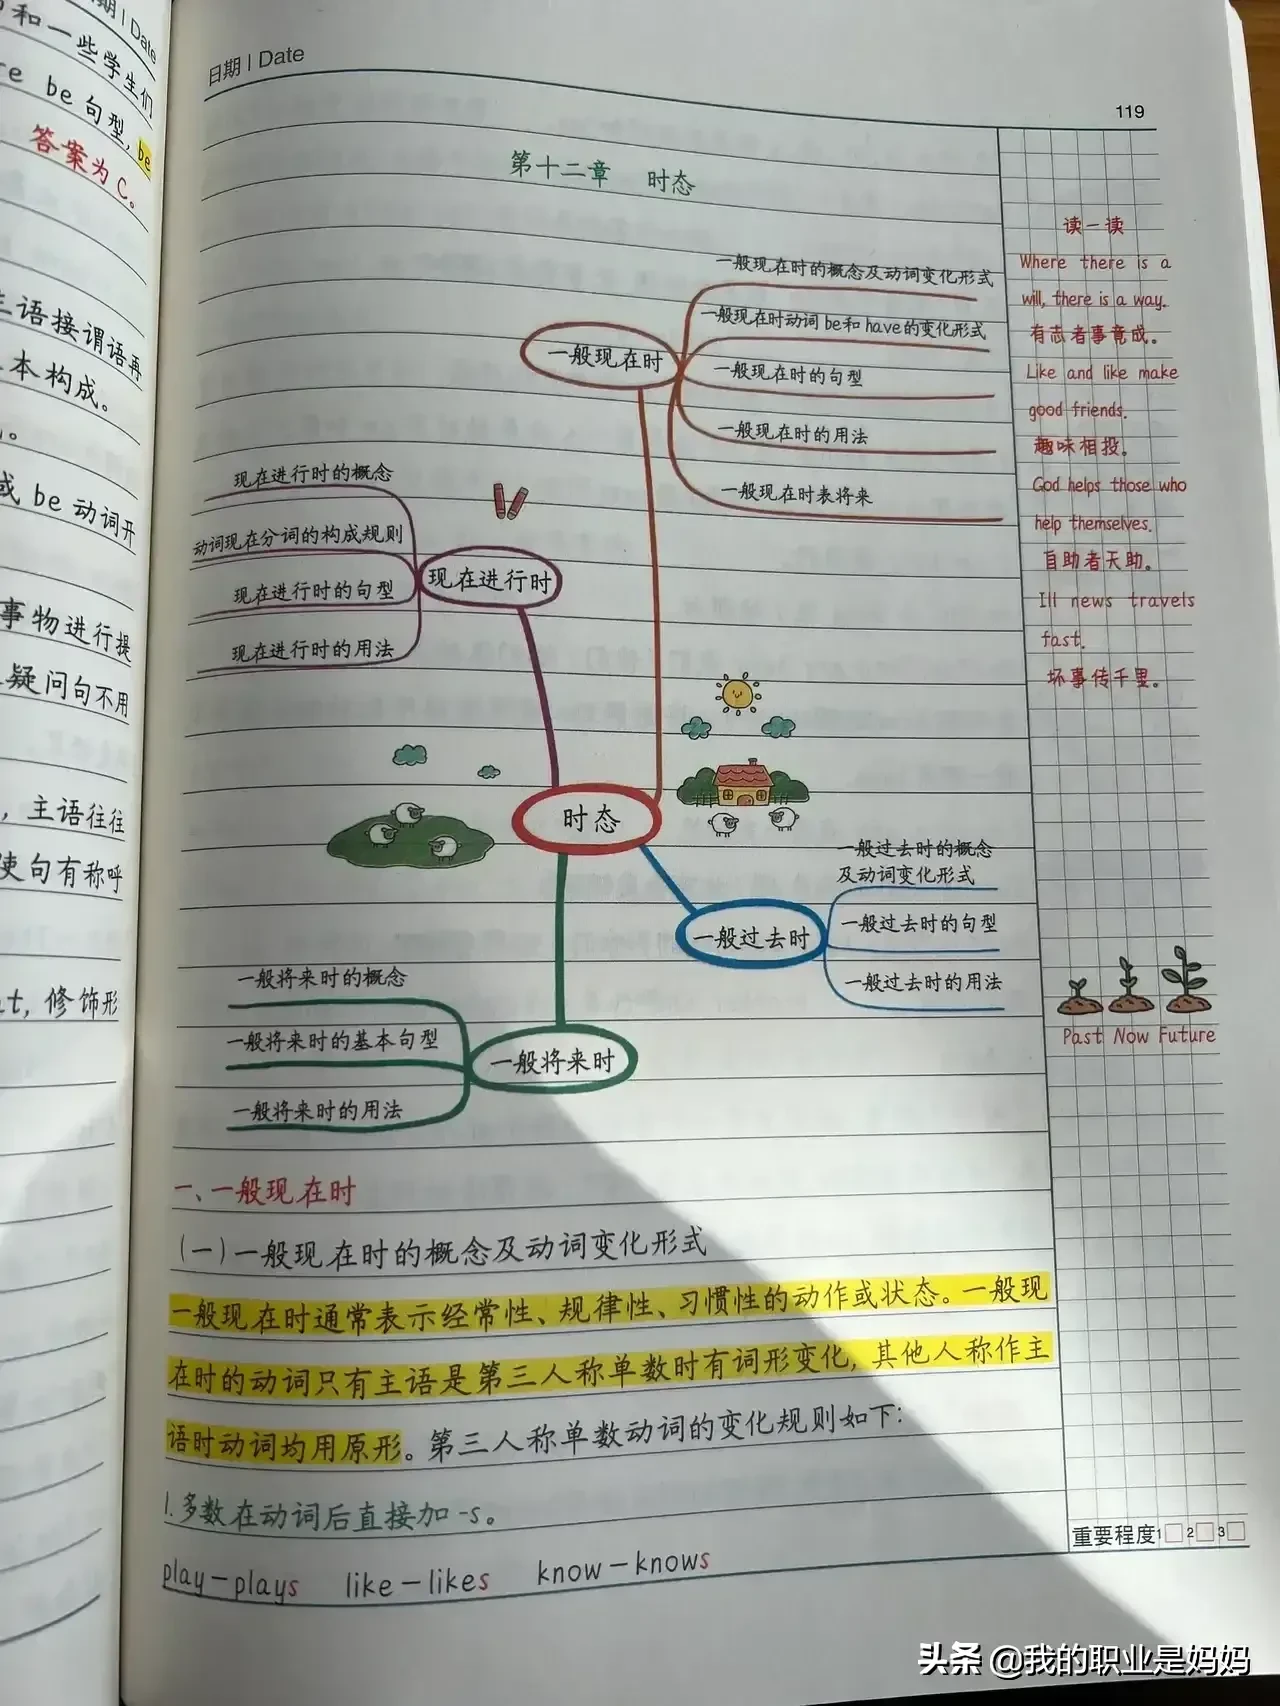 期 | Date
和一些学生们
re be句型, be
答案为C。
主语接谓语再
本构成。
或be动词开
事物进行提
疑问句不用
, 主语往往
使句有称呼
t, 修饰形
日期 | Date
119
第十二章 时态
一般现在时的概念及动词变化形式
一般现在时动词be和have的变化形式
一般现在时
一般现在时的句型
一般现在时的用法
一般现在时表将来
现在进行时的概念
动词现在分词的构成规则
现在进行时
现在进行时的句型
现在进行时的用法
时态
一般过去时的概念
及动词变化形式
一般过去时
一般过去时的句型
一般过去时的用法
一般将来时的概念
一般将来时的基本句型
一般将来时
一般将来时的用法
一、一般现在时
(一)一般现在时的概念及动词变化形式
一般现在时通常表示经常性、规律性、习惯性的动作或状态。一般现
在时的动词只有主语是第三人称单数时有词形变化, 其他人称作主
语时动词均用原形。第三人称单数动词的变化规则如下:
1.多数在动词后直接加-s。
play—plays like—likes know—knows
读一读
Where there is a
will, there is a way.
有志者事竟成。
Like and like make
good friends.
趣味相投。
God helps those who
help themselves.
自助者天助。
Ill news travels
fast.
坏事传千里。
Past Now Future
重要程度 1 2 3
头条 @我的职业是妈妈